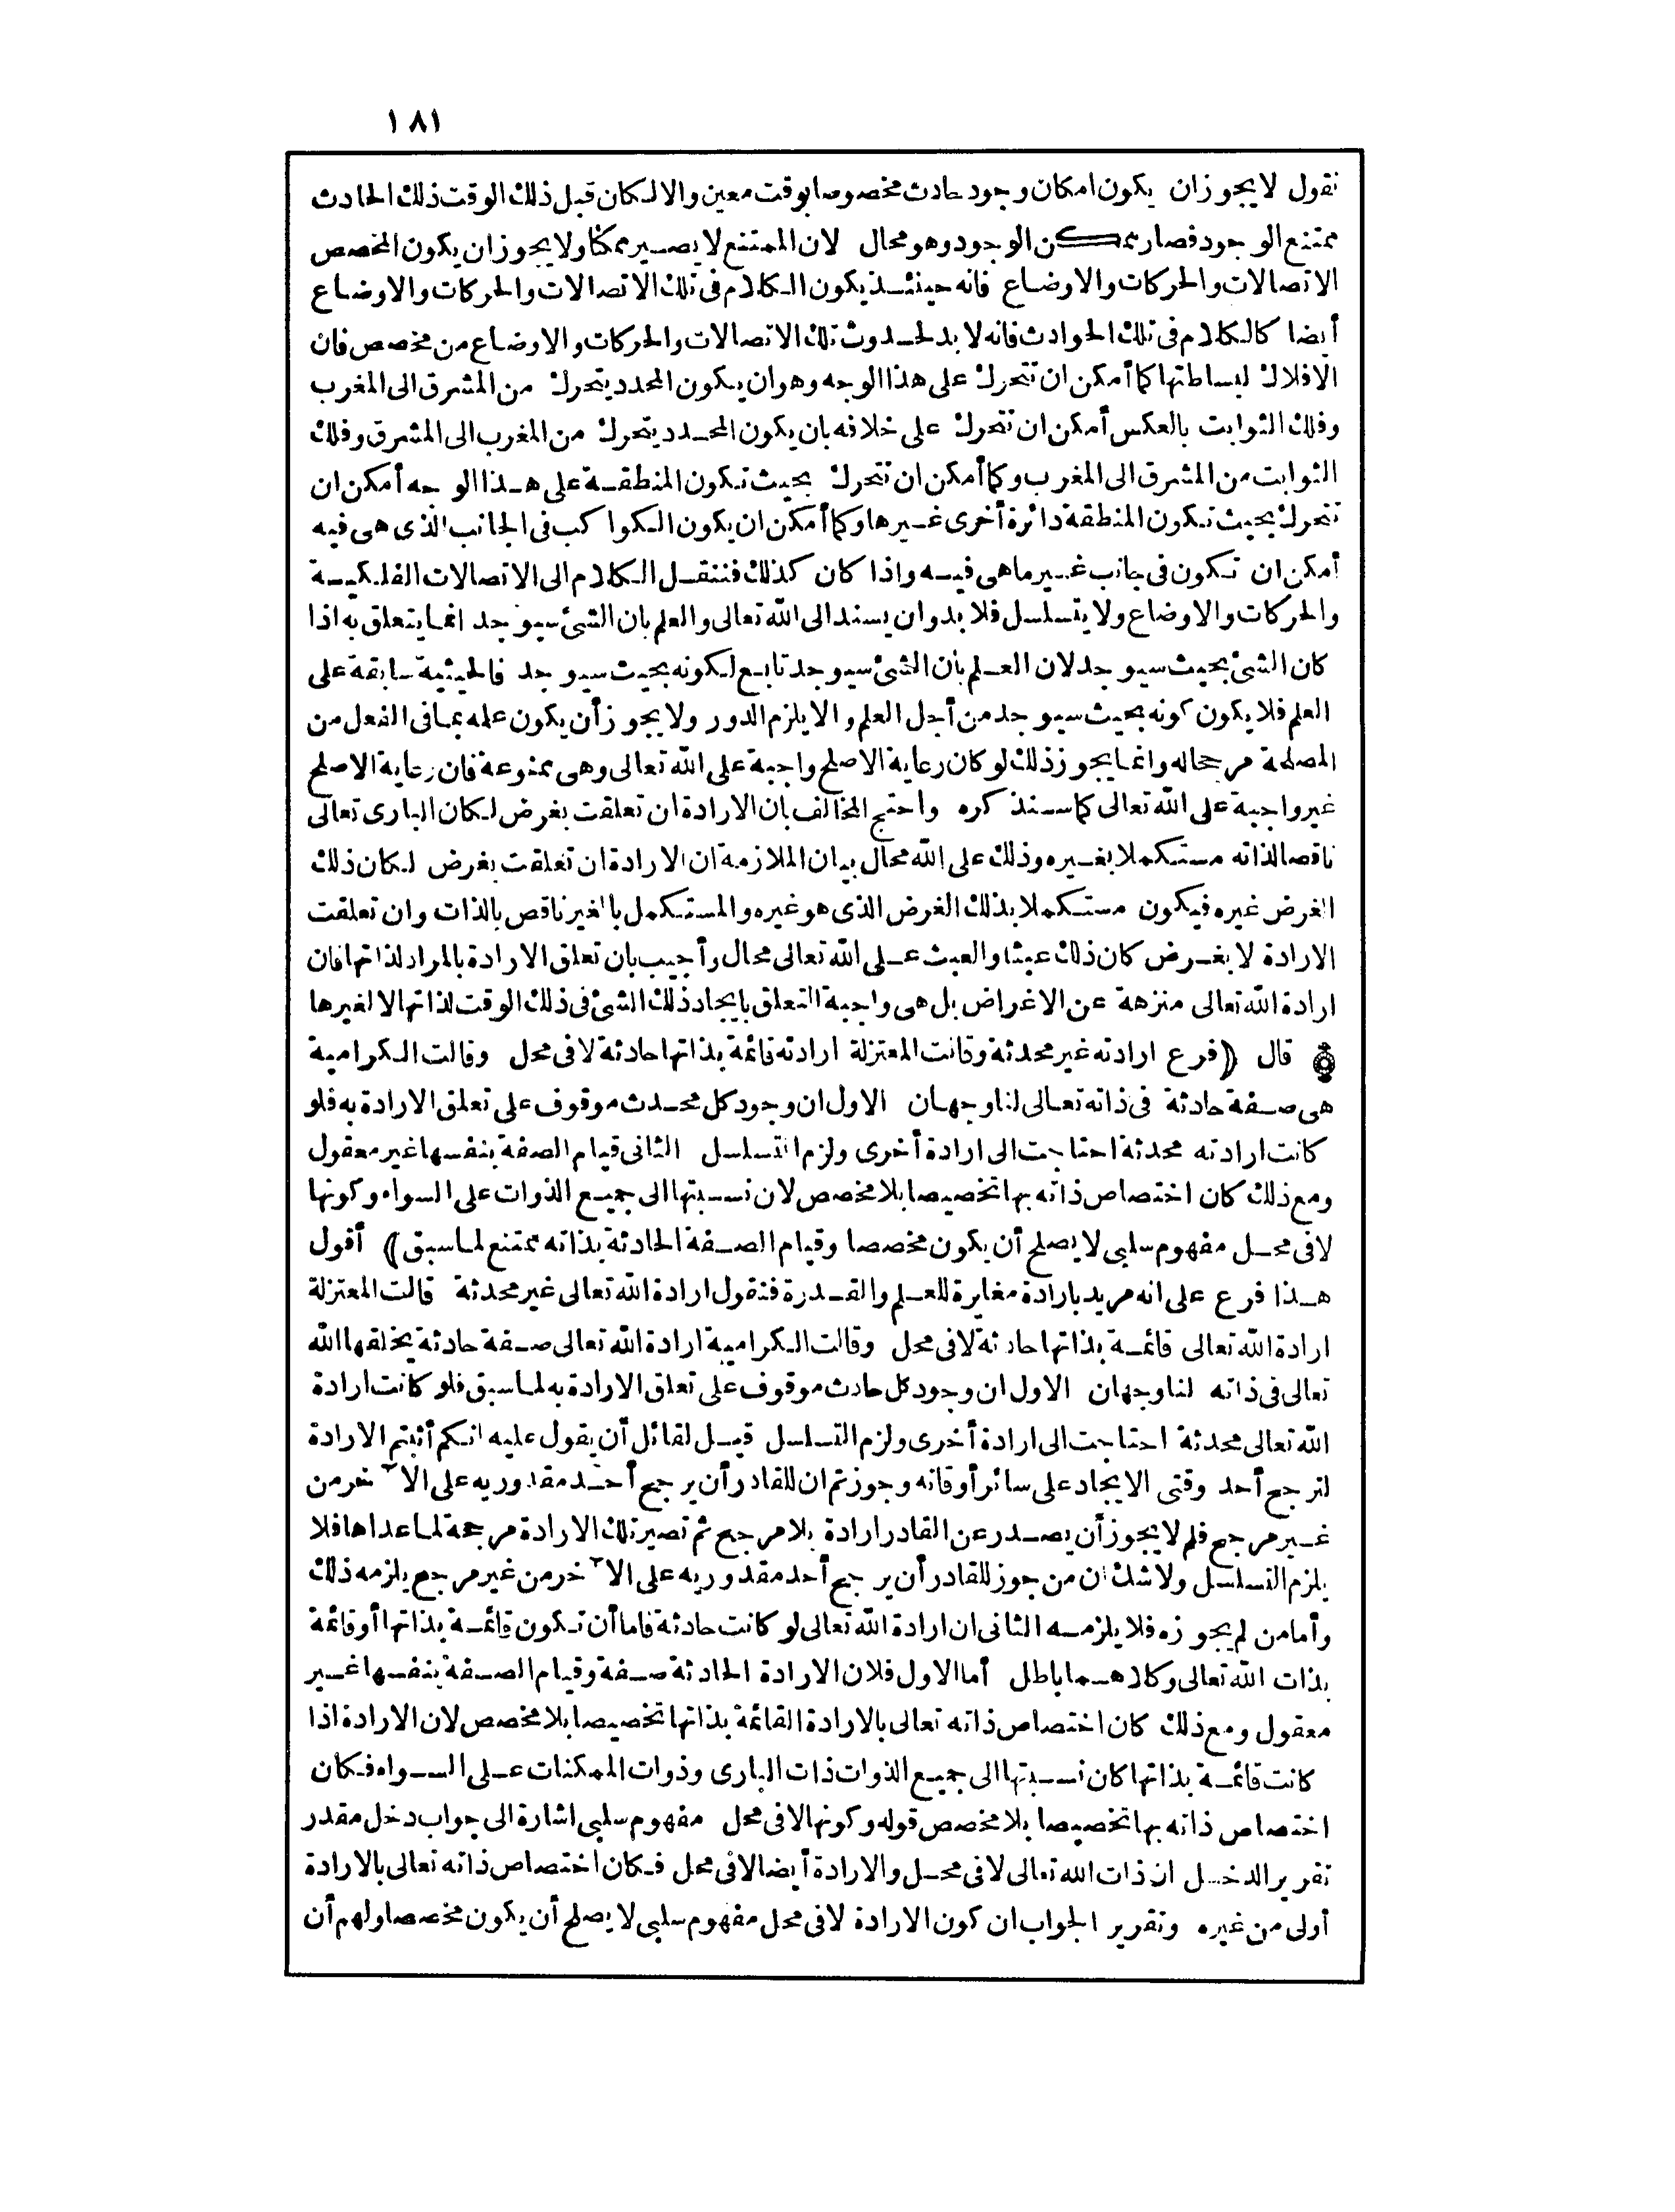 ١٨١
نقول لا يجوز ان يكون امكان وجود حادث مخصوصا بوقت معين والا لكان قبل ذلك الوقت ذلك الحادث
ممتنع الوجود فصار ممكن الوجود وهو محال لان الممتنع لا يصير ممكنا ولا يجوز ان يكون المخصص
الاتصالات والحركات والاوضاع فانه حينئذ يكون الكلام فى تلك الاتصالات والحركات والاوضاع
أيضا كالكلام فى تلك الحوادث فانه لا بد لحدوث تلك الاتصالات والحركات والاوضاع من مخصص فان
الافلاك لبساطتها كما أمكن ان تتحرك على هذا الوجه وهو ان يكون المحدد يتحرك من المشرق الى المغرب
وفلك الثوابت بالعكس أمكن ان تتحرك على خلافه بان يكون المحدد يتحرك من المغرب الى المشرق وفلك
الثوابت من المشرق الى المغرب وكما أمكن ان تتحرك بحيث تكون المنطقة على هذا الوجه أمكن ان
تتحرك بحيث تكون المنطقة دائرة أخرى غيرها وكما أمكن ان يكون الكواكب فى الجانب الذى هى فيه
أمكن ان تكون فى جانب غير ما هى فيه واذا كان كذلك فننقل الكلام الى الاتصالات الفلكية
والحركات والاوضاع ولا يتسلسل فلا بد وان يسند الى الله تعالى والعلم بان الشئ سيوجد انما يتعلق به اذا
كان الشئ بحيث سيوجد لان العلم بأن الشئ سيوجد تابع لكونه بحيث سيوجد فالحيثية سابقة على
العلم فلا يكون كونه بحيث سيوجد من أجل العلم والا يلزم الدور ولا يجوز أن يكون علمه بما فى الفعل من
المصلحة مرجحا له وانما يجوز ذلك لو كان رعاية الاصلح واجبة على الله تعالى وهى ممنوعة فان رعاية الاصلح
غير واجبة على الله تعالى كما سنذكره واحتج المخالف بان الارادة ان تعلقت بغرض لكان البارى تعالى
ناقصا لذاته مستكملا بغيره وذلك على الله محال بيان الملازمة ان الارادة ان تعلقت بغرض لكان ذلك
الغرض غيره فيكون مستكملا بذلك الغرض الذى هو غيره والمستكمل بالغير ناقص بالذات وان تعلقت
الارادة لا بغرض كان ذلك عبثا والعبث على الله تعالى محال وأجيب بان تعلق الارادة بالمراد لذاتها فان
ارادة الله تعالى منزهة عن الاغراض بل هى واجبة التعلق بايجاد ذلك الشئ فى ذلك الوقت لذاتها لا لغيرها
قال (فرع ارادته غير محدثة وقالت المعتزلة ارادته قائمة بذاتها حادثة لا فى محل وقالت الكرامية
هى صفة حادثة فى ذاته تعالى لنا وجهان الاول ان وجود كل محدث موقوف على تعلق الارادة به فلو
كانت ارادته محدثة احتاجت الى ارادة أخرى ولزم التسلسل الثانى قيام الصفة بنفسها غير معقول
ومع ذلك كان اختصاص ذاته بها تخصيصا بلا مخصص لان نسبتها الى جميع الذوات على السواء وكونها
لا فى محل مفهوم سلبى لا يصلح أن يكون مخصصا وقيام الصفة الحادثة بذاته ممتنع لما سبق) أقول
هذا فرع على انه مريد بارادة مغايرة للعلم والقدرة فنقول ارادة الله تعالى غير محدثة قالت المعتزلة
ارادة الله تعالى قائمة بذاتها حادثة لا فى محل وقالت الكرامية ارادة الله تعالى صفة حادثة يخلقها الله
تعالى فى ذاته لنا وجهان الاول ان وجود كل حادث موقوف على تعلق الارادة به لما سبق فلو كانت ارادة
الله تعالى محدثة احتاجت الى ارادة أخرى ولزم التسلسل قيل لقائل أن يقول عليه انكم أثبتم الارادة
لترجح أحد وقتى الايجاد على سائر أوقاته وجوزتم ان للقادر أن يرجح أحد مقدوريه على الآخر من
غير مرجح فلم لا يجوز أن يصدر عن القادر ارادة بلا مرجح ثم تصير تلك الارادة مرجحة لما عداها فلا
يلزم التسلسل ولا شك ان من جوز للقادر أن يرجح أحد مقدوريه على الآخر من غير مرجح يلزمه ذلك
وأما من لم يجوزه فلا يلزمه الثانى ان ارادة الله تعالى لو كانت حادثة فاما أن تكون قائمة بذاتها أو قائمة
بذات الله تعالى وكلاهما باطل أما الاول فلان الارادة الحادثة صفة وقيام الصفة بنفسها غير
معقول ومع ذلك كان اختصاص ذاته تعالى بالارادة القائمة بذاتها تخصيصا بلا مخصص لان الارادة اذا
كانت قائمة بذاتها كان نسبتها الى جميع الذوات ذات البارى وذوات الممكنات على السواء فكان
اختصاص ذاته بها تخصيصا بلا مخصص قوله وكونها لا فى محل مفهوم سلبى اشارة الى جواب دخل مقدر
تقرير الدخل ان ذات الله تعالى لا فى محل والارادة أيضا لا فى محل فكان اختصاص ذاته تعالى بالارادة
أولى من غيره وتقرير الجواب ان كون الارادة لا فى محل مفهوم سلبى لا يصلح أن يكون مخصصا ولهم أن